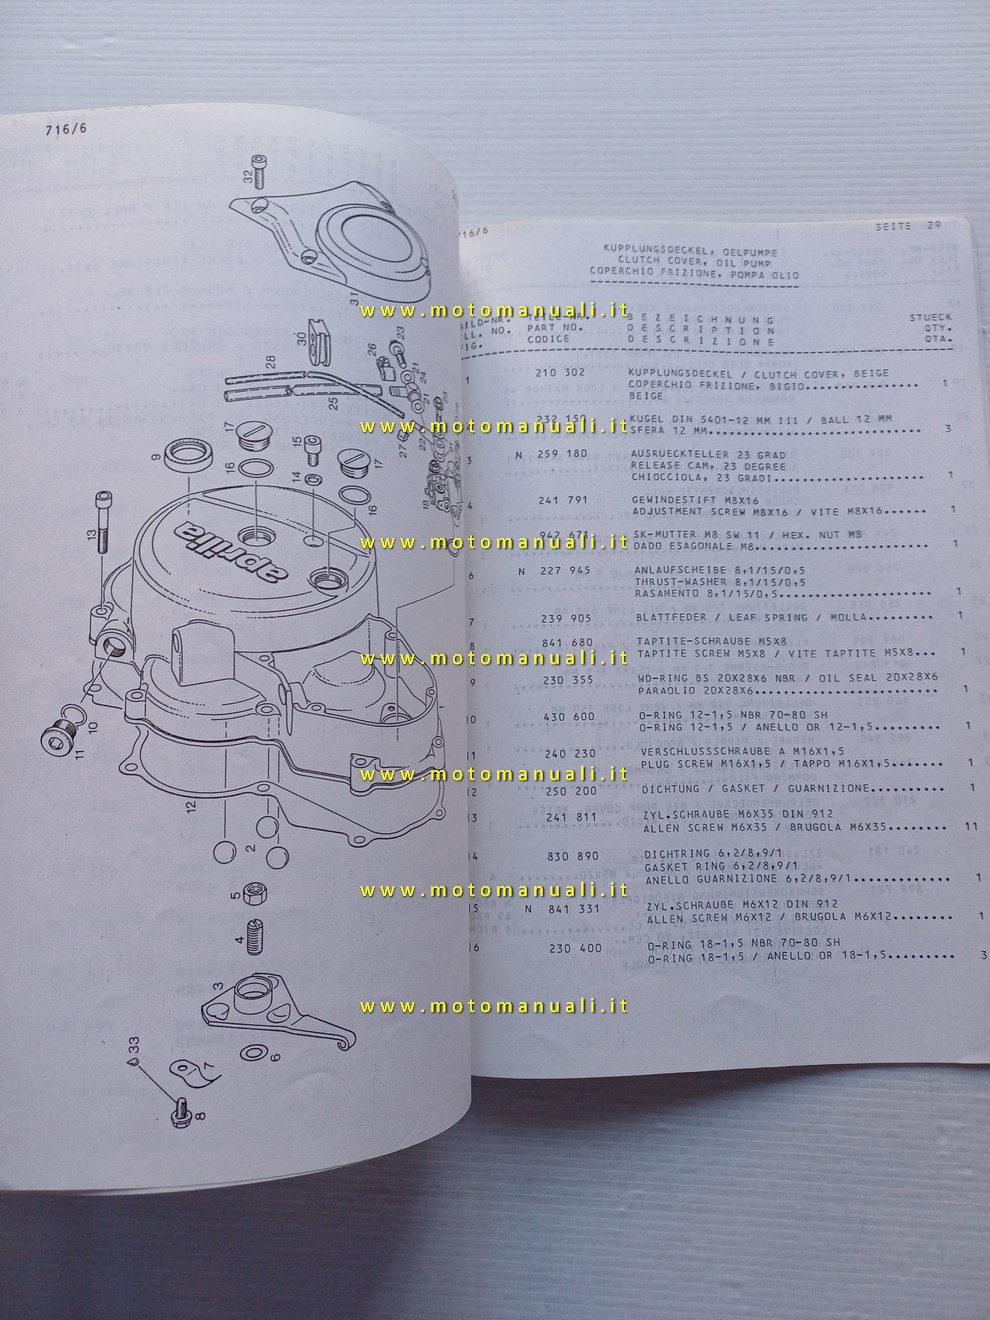 716/6
32
31
30
28
25
26
23
21
24
21
22
27
17
16
15
14
17
16
18
9
13
aprilia
10
11
12
2
5
4
3
6
7
33
8
16/6
SEITE 29
KUPPLUNGSDECKEL, OELPUMPE
CLUTCH COVER, OIL PUMP
COPERCHIO FRIZIONE, POMPA OLIO
BILD-NR. BEZEICHNUNG STUECK
ILL. NO. PART NO. DESCRIPTION QTY.
FIG. CODICE DESCRIZIONE QTA.
1 210 302 KUPPLUNGSDECKEL / CLUTCH COVER, BEIGE
COPERCHIO FRIZIONE, BIGIO................ 1
BEIGE
232 150 KUGEL DIN 5401-12 MM III / BALL 12 MM
SFERA 12 MM.............................. 3
3 N 259 180 AUSRUECKTELLER 23 GRAD
RELEASE CAM, 23 DEGREE
CHIOCCIOLA, 23 GRADI..................... 1
4 241 791 GEWINDESTIFT M8X16
ADJUSTMENT SCREW M8X16 / VITE M8X16...... 1
942 671 SK-MUTTER M8 SW 11 / HEX. NUT M8
DADO ESAGONALE M8........................ 1
6 N 227 945 ANLAUFSCHEIBE 8,1/15/0,5
THRUST-WASHER 8,1/15/0,5
RASAMENTO 8,1/15/0,5..................... 1
7 239 905 BLATTFEDER / LEAF SPRING / MOLLA......... 1
8 841 680 TAPTITE-SCHRAUBE M5X8
TAPTITE SCREW M5X8 / VITE TAPTITE M5X8... 1
9 230 355 WD-RING BS 20X28X6 NBR / OIL SEAL 20X28X6
PARAOLIO 20X28X6......................... 1
10 430 600 O-RING 12-1,5 NBR 70-80 SH
O-RING 12-1,5 / ANELLO OR 12-1,5......... 1
11 240 230 VERSCHLUSSSCHRAUBE A M16X1,5
PLUG SCREW M16X1,5 / TAPPO M16X1,5....... 1
12 250 200 DICHTUNG / GASKET / GUARNIZIONE.......... 1
13 241 811 ZYL.SCHRAUBE M6X35 DIN 912
ALLEN SCREW M6X35 / BRUGOLA M6X35........ 11
14 830 890 DICHTRING 6,2/8,9/1
GASKET RING 6,2/8,9/1
ANELLO GUARNIZIONE 6,2/8,9/1............. 1
15 N 841 331 ZYL.SCHRAUBE M6X12 DIN 912
ALLEN SCREW M6X12 / BRUGOLA M6X12........ 1
16 230 400 O-RING 18-1,5 NBR 70-80 SH
O-RING 18-1,5 / ANELLO OR 18-1,5......... 3
www.motomanuali.it
www.motomanuali.it
www.motomanuali.it
www.motomanuali.it
www.motomanuali.it
www.motomanuali.it
www.motomanuali.it